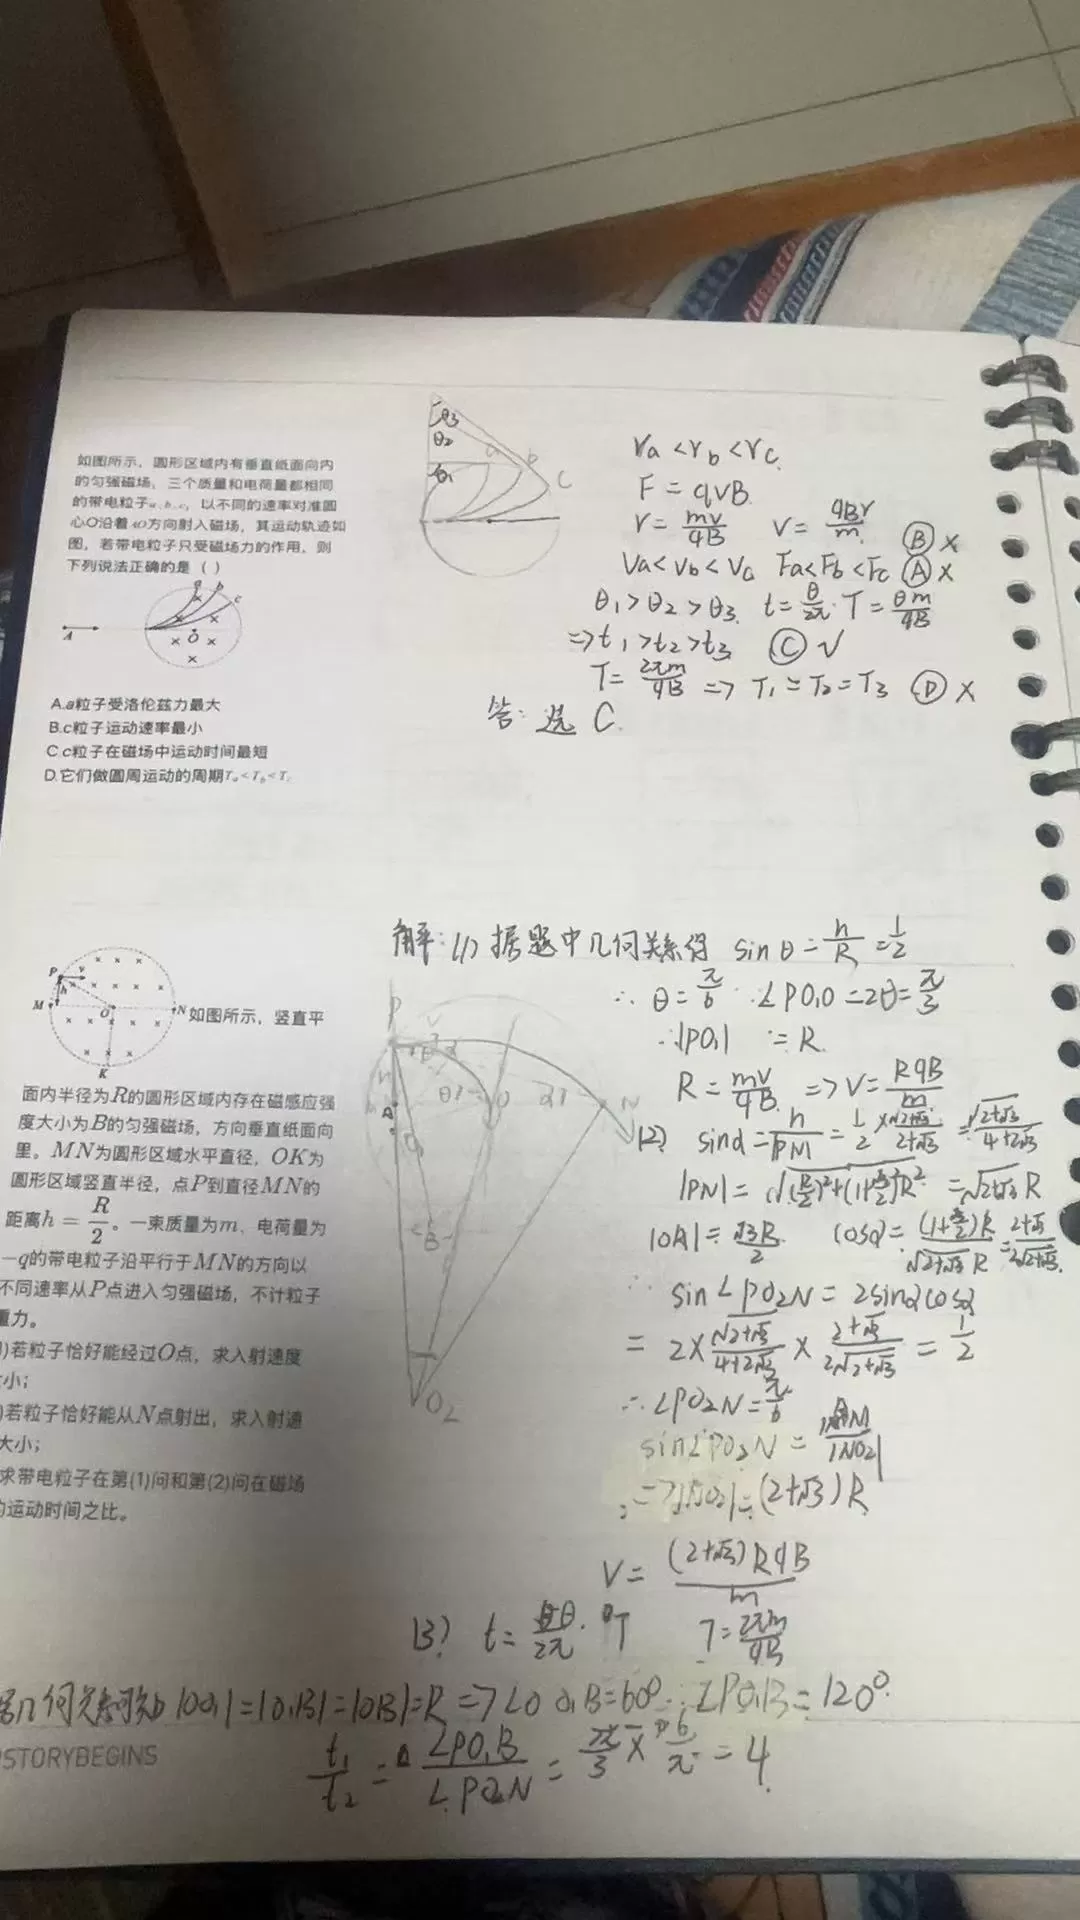 如图所示，圆形区域内有垂直纸面向内
的匀强磁场，三个质量和电荷量都相同
的带电粒子a、b、c，以不同的速率对准圆
心O沿着AO方向射入磁场，其运动轨迹如
图，若带电粒子只受磁场力的作用，则
下列说法正确的是（ ）
a b c
A
O
A.a粒子受洛伦兹力最大
B.c粒子运动速率最小
C.c粒子在磁场中运动时间最短
D.它们做圆周运动的周期Tₐ<T_b<T_c
θ3
θ2
θ1
a b C
ra<rb<rc.
F=qvB.
r=mv/qB v=qBr/m Ⓑ×
Va<Vb<Vc Fa<Fb<Fc Ⓐ×
θ1>θ2>θ3. t=θ/2π·T=θm/qB
=>t1>t2>t3 Ⓒ√
T=2πm/qB => T1=T2=T3 Ⓓ×
答：选 C.
P v
h
M O N
K
如图所示，竖直平
面内半径为R的圆形区域内存在磁感应强
度大小为B的匀强磁场，方向垂直纸面向
里。MN为圆形区域水平直径，OK为
圆形区域竖直半径，点P到直径MN的
距离h=R/2。一束质量为m、电荷量为
−q的带电粒子沿平行于MN的方向以
不同速率从P点进入匀强磁场，不计粒子
重力。
)若粒子恰好能经过O点，求入射速度
大小；
)若粒子恰好能从N点射出，求入射速
大小；
求带电粒子在第(1)问和第(2)问在磁场
的运动时间之比。
解：(1)据题中几何关系得 sinθ=h/R=1/2
∴θ=π/6 ∠PO₁O=2θ=π/3
∴|PO₁|=R
R=mv/qB => V=RqB/m
(2) sinα=h/PN=1/2×√(2+√3)/(2+√3)=√(2+√3)/(4+2√3)
|PN|=√((R/2)²+(1+√3/2)²R²)=√(2+√3)R
|OA|=√3R/2 cosα=(1+√3/2)R/(√(2+√3)R)=(2+√3)/(2√(2+√3)).
∴sin∠PO₂N=2sinαcosα
=2×√(2+√3)/(4+2√3)×(2+√3)/(2√(2+√3))=1/2
∴∠PO₂N=π/6
sin∠PO₂N=|AN|/|NO₂|
=>|NO₂|=(2+√3)R
V=(2+√3)RqB/m
(3) t=θ/2π·T T=2πm/qB
几何关系可知|OO₁|=|O₁B|=|OB|=R=>∠OO₁B=60°∴∠PO₁B=120°.
t₁/t₂=∠PO₁B/∠PO₂N=2π/3×6/π=4
STORYBEGINS